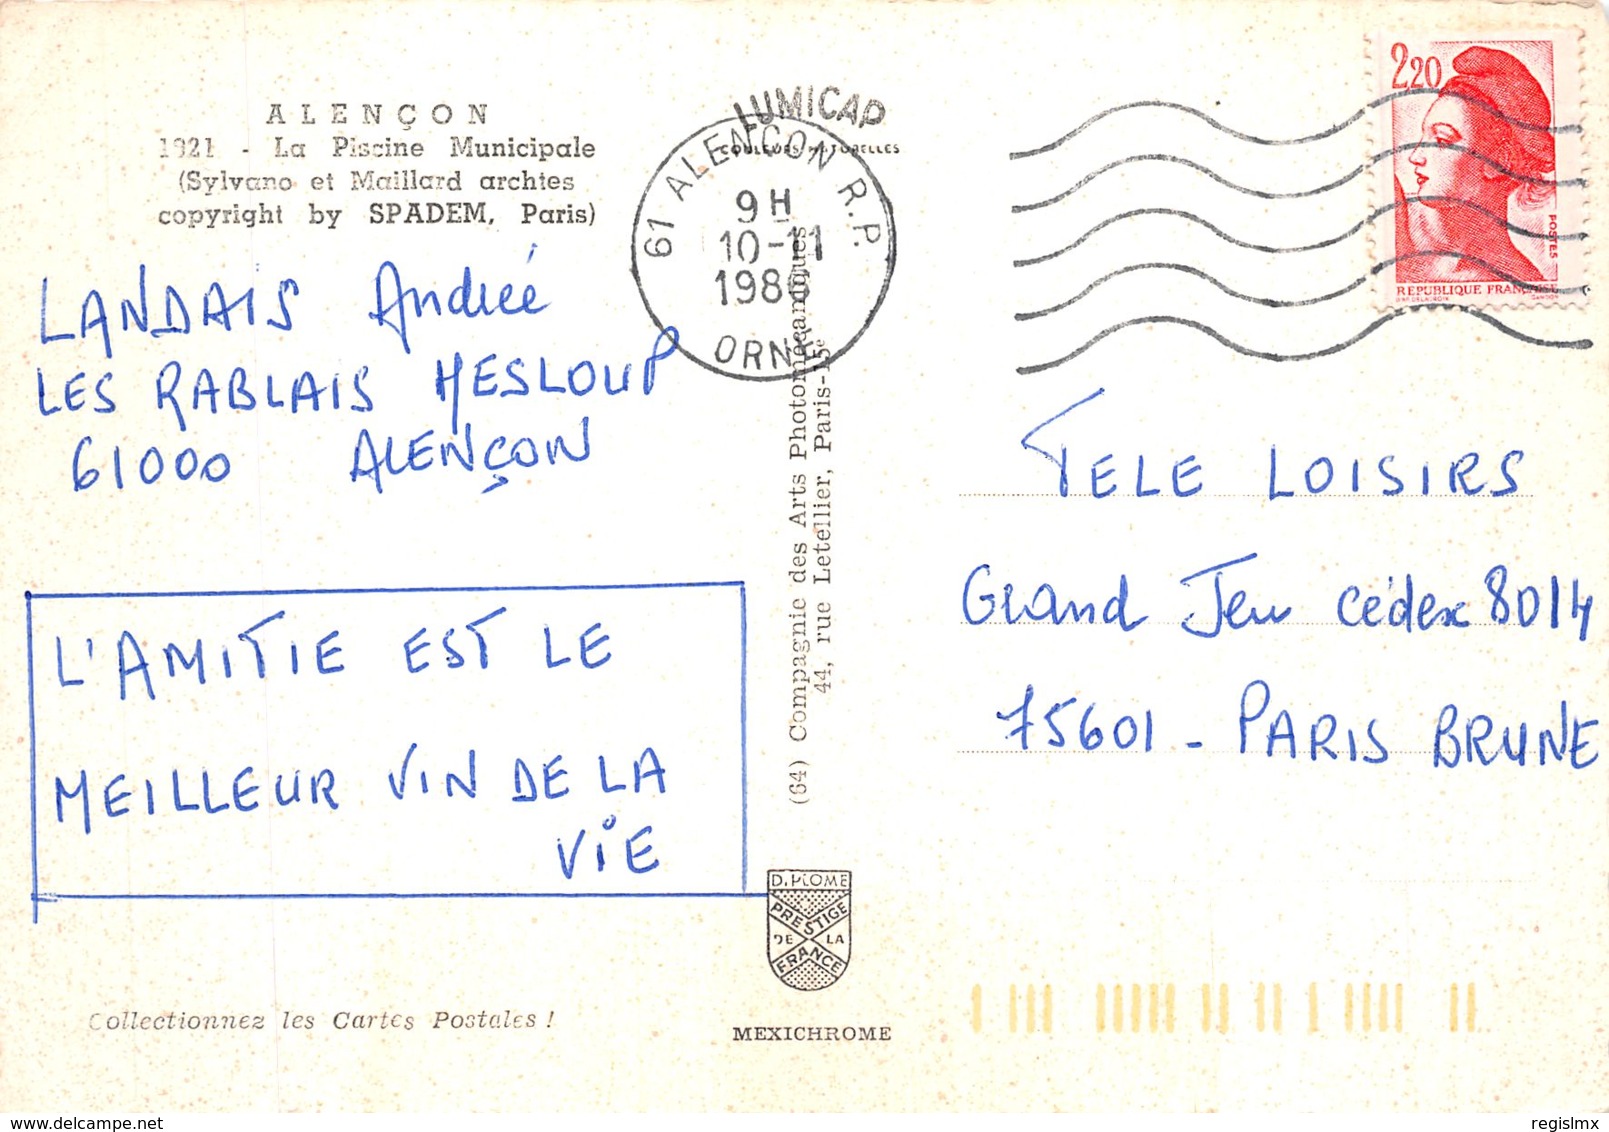 ALENÇON
1921 - La Piscine Municipale
(Sylvano et Maillard archtes
copyright by SPADEM, Paris)
LUMICAP
COULEURS NATURELLES
61 ALENÇON R.P.
9H
10-11
198
ORNE
2,20
POSTES
REPUBLIQUE FRANÇAISE
D'AP. DELACROIX GANDON
LANDAIS Andrée
LES RABLAIS HESLOUP
61000 ALENÇON
L'AMITIE EST LE
MEILLEUR VIN DE LA
VIE
(64) Compagnie des Arts Photomécaniques
44, rue Letellier, Paris-15e
TELE LOISIRS
Grand Jeu cédex 8014
75601 - PARIS BRUNE
DIPLOME
PRESTIGE
DE LA
FRANCE
Collectionnez les Cartes Postales !
MEXICHROME
regislmx